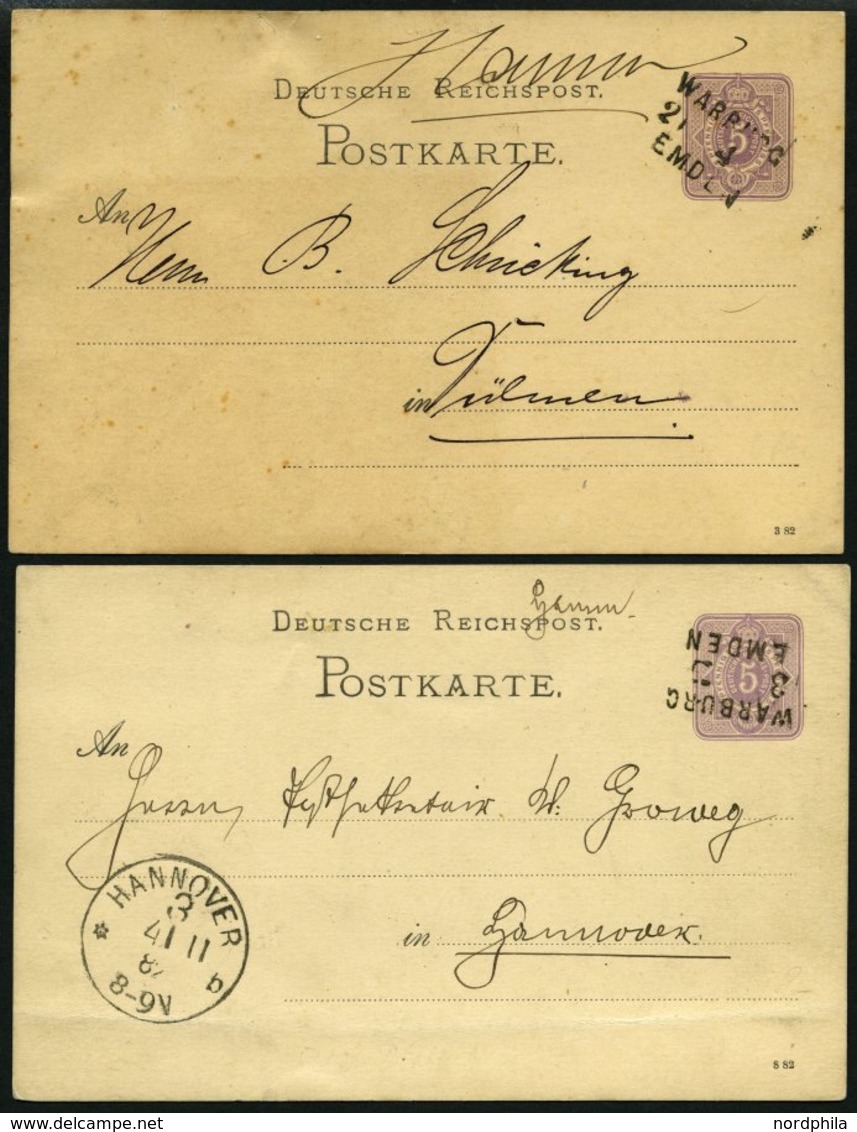 Hamm
DEUTSCHE REICHSPOST.
POSTKARTE.
WARBURG
21
EMDEN
5
An
Herrn B. Schücking
in Dülmen
3 82
Hamm
DEUTSCHE REICHSPOST.
POSTKARTE.
WARBURG
3 11
EMDEN
5
An
Herrn W. Groweg
in Hannover.
HANNOVER
3
4 11
82
8-9N
b
8 82
nordphila